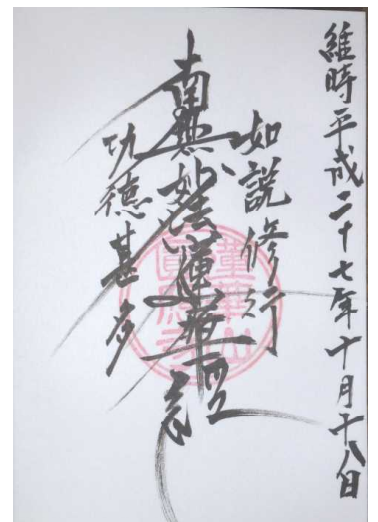 維時平成二十七年十月十八日
如説修行
南無妙法蓮華經
功徳甚多